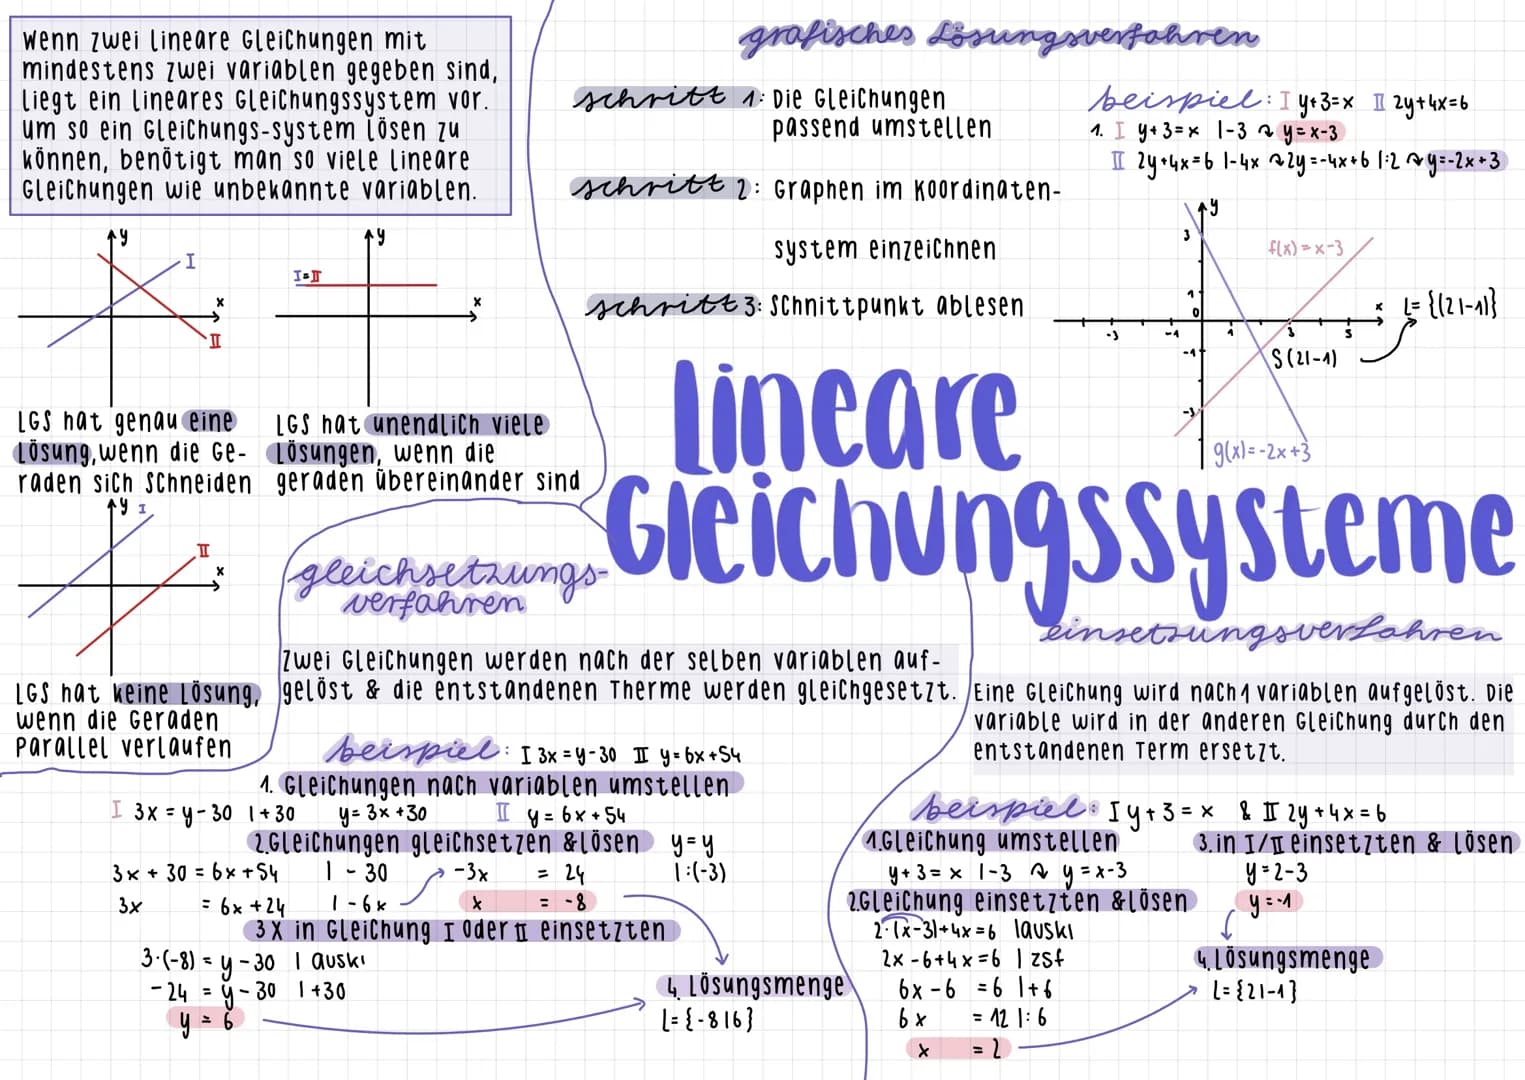 Wenn zwei lineare Gleichungen mit
mindestens zwei variablen gegeben sind,
liegt ein lineares Gleichungssystem vor.
um so ein Gleichungs-system lösen zu
können, benötigt man so viele lineare
Gleichungen wie unbekannte variablen.
y
I
x
II
LGS hat genau eine
Lösung, wenn die Ge-
raden sich schneiden
y
I=II
x
LGS hat unendlich viele
Lösungen, wenn die
geraden übereinander sind
y I
II
x
LGS hat keine Lösung,
wenn die Geraden
Parallel verlaufen
grafisches Lösungsverfahren
schritt 1: Die Gleichungen
passend umstellen
schritt 2: Graphen im Koordinaten-
system einzeichnen
schritt 3: Schnittpunkt ablesen
beispiel: I y+3=x II 2y+4x=6
1. I y+3=x |-3 ↷ y=x-3
II 2y+4x=6 |-4x ↷ 2y=-4x+6 |:2 ↷ y=-2x+3
y
3
f(x)=x-3
1
0
x
L={(2|-1)}
-3 -1 1 3 5
-1
S(2|-1)
-3
g(x)=-2x+3
Lineare
Gleichungssysteme
gleichsetzungs-
verfahren
Zwei Gleichungen werden nach der selben variablen auf-
gelöst & die entstandenen Therme werden gleichgesetzt.
beispiel: I 3x=y-30 II y=6x+54
1. Gleichungen nach variablen umstellen
I 3x = y-30 |+30 y=3x+30 II y=6x+54
2. Gleichungen gleichsetzen & lösen y=y
3x + 30 = 6x+54 | -30 -3x = 24 |:(-3)
3x = 6x+24 | -6x x = -8
3 X in Gleichung I oder II einsetzten
3·(-8) = y-30 | auskl
-24 = y-30 |+30
y = 6
4. Lösungsmenge
L={-8|6}
einsetzungsverfahren
Eine Gleichung wird nach 1 variablen aufgelöst. Die
variable wird in der anderen Gleichung durch den
entstandenen Term ersetzt.
beispiel: I y+3=x & II 2y+4x=6
1. Gleichung umstellen
y+3=x |-3 ↷ y=x-3
2. Gleichung einsetzten & lösen
2·(x-3)+4x=6 |auskl
2x-6+4x=6 | zsf
6x-6 =6 |+6
6x =12 |:6
x = 2
3. in I/II einsetzten & lösen
y=2-3
y=-1
4. Lösungsmenge
L={2|-1}